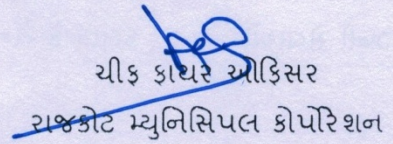 ચીફ ફાયર ઓફિસર
રાજકોટ મ્યુનિસિપલ કોર્પોરેશન